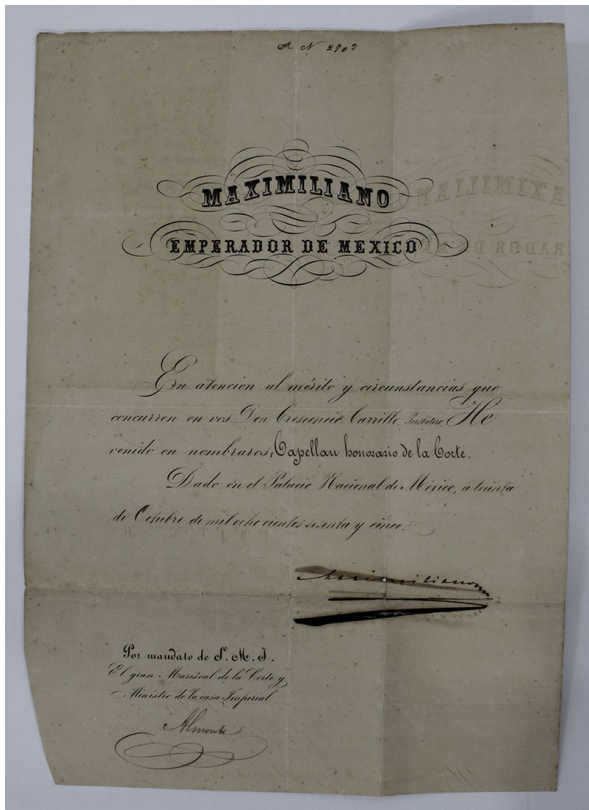 N 2903
MAXIMILIANO
EMPERADOR DE MEXICO
En atencion al mérito y circunstancias que
concurren en vos Don Crescencio Carrillo, He
venido en nombraros, Capellan honorario de la Corte.
Dado en el Palacio Nacional de Mexico, a treinta
de Octubre de mil ocho cientos sesenta y cinco.
Maximiliano
Por mandato de S. M. I.
El gran Mariscal de la Corte y
Ministro de la casa Imperial
Almonte